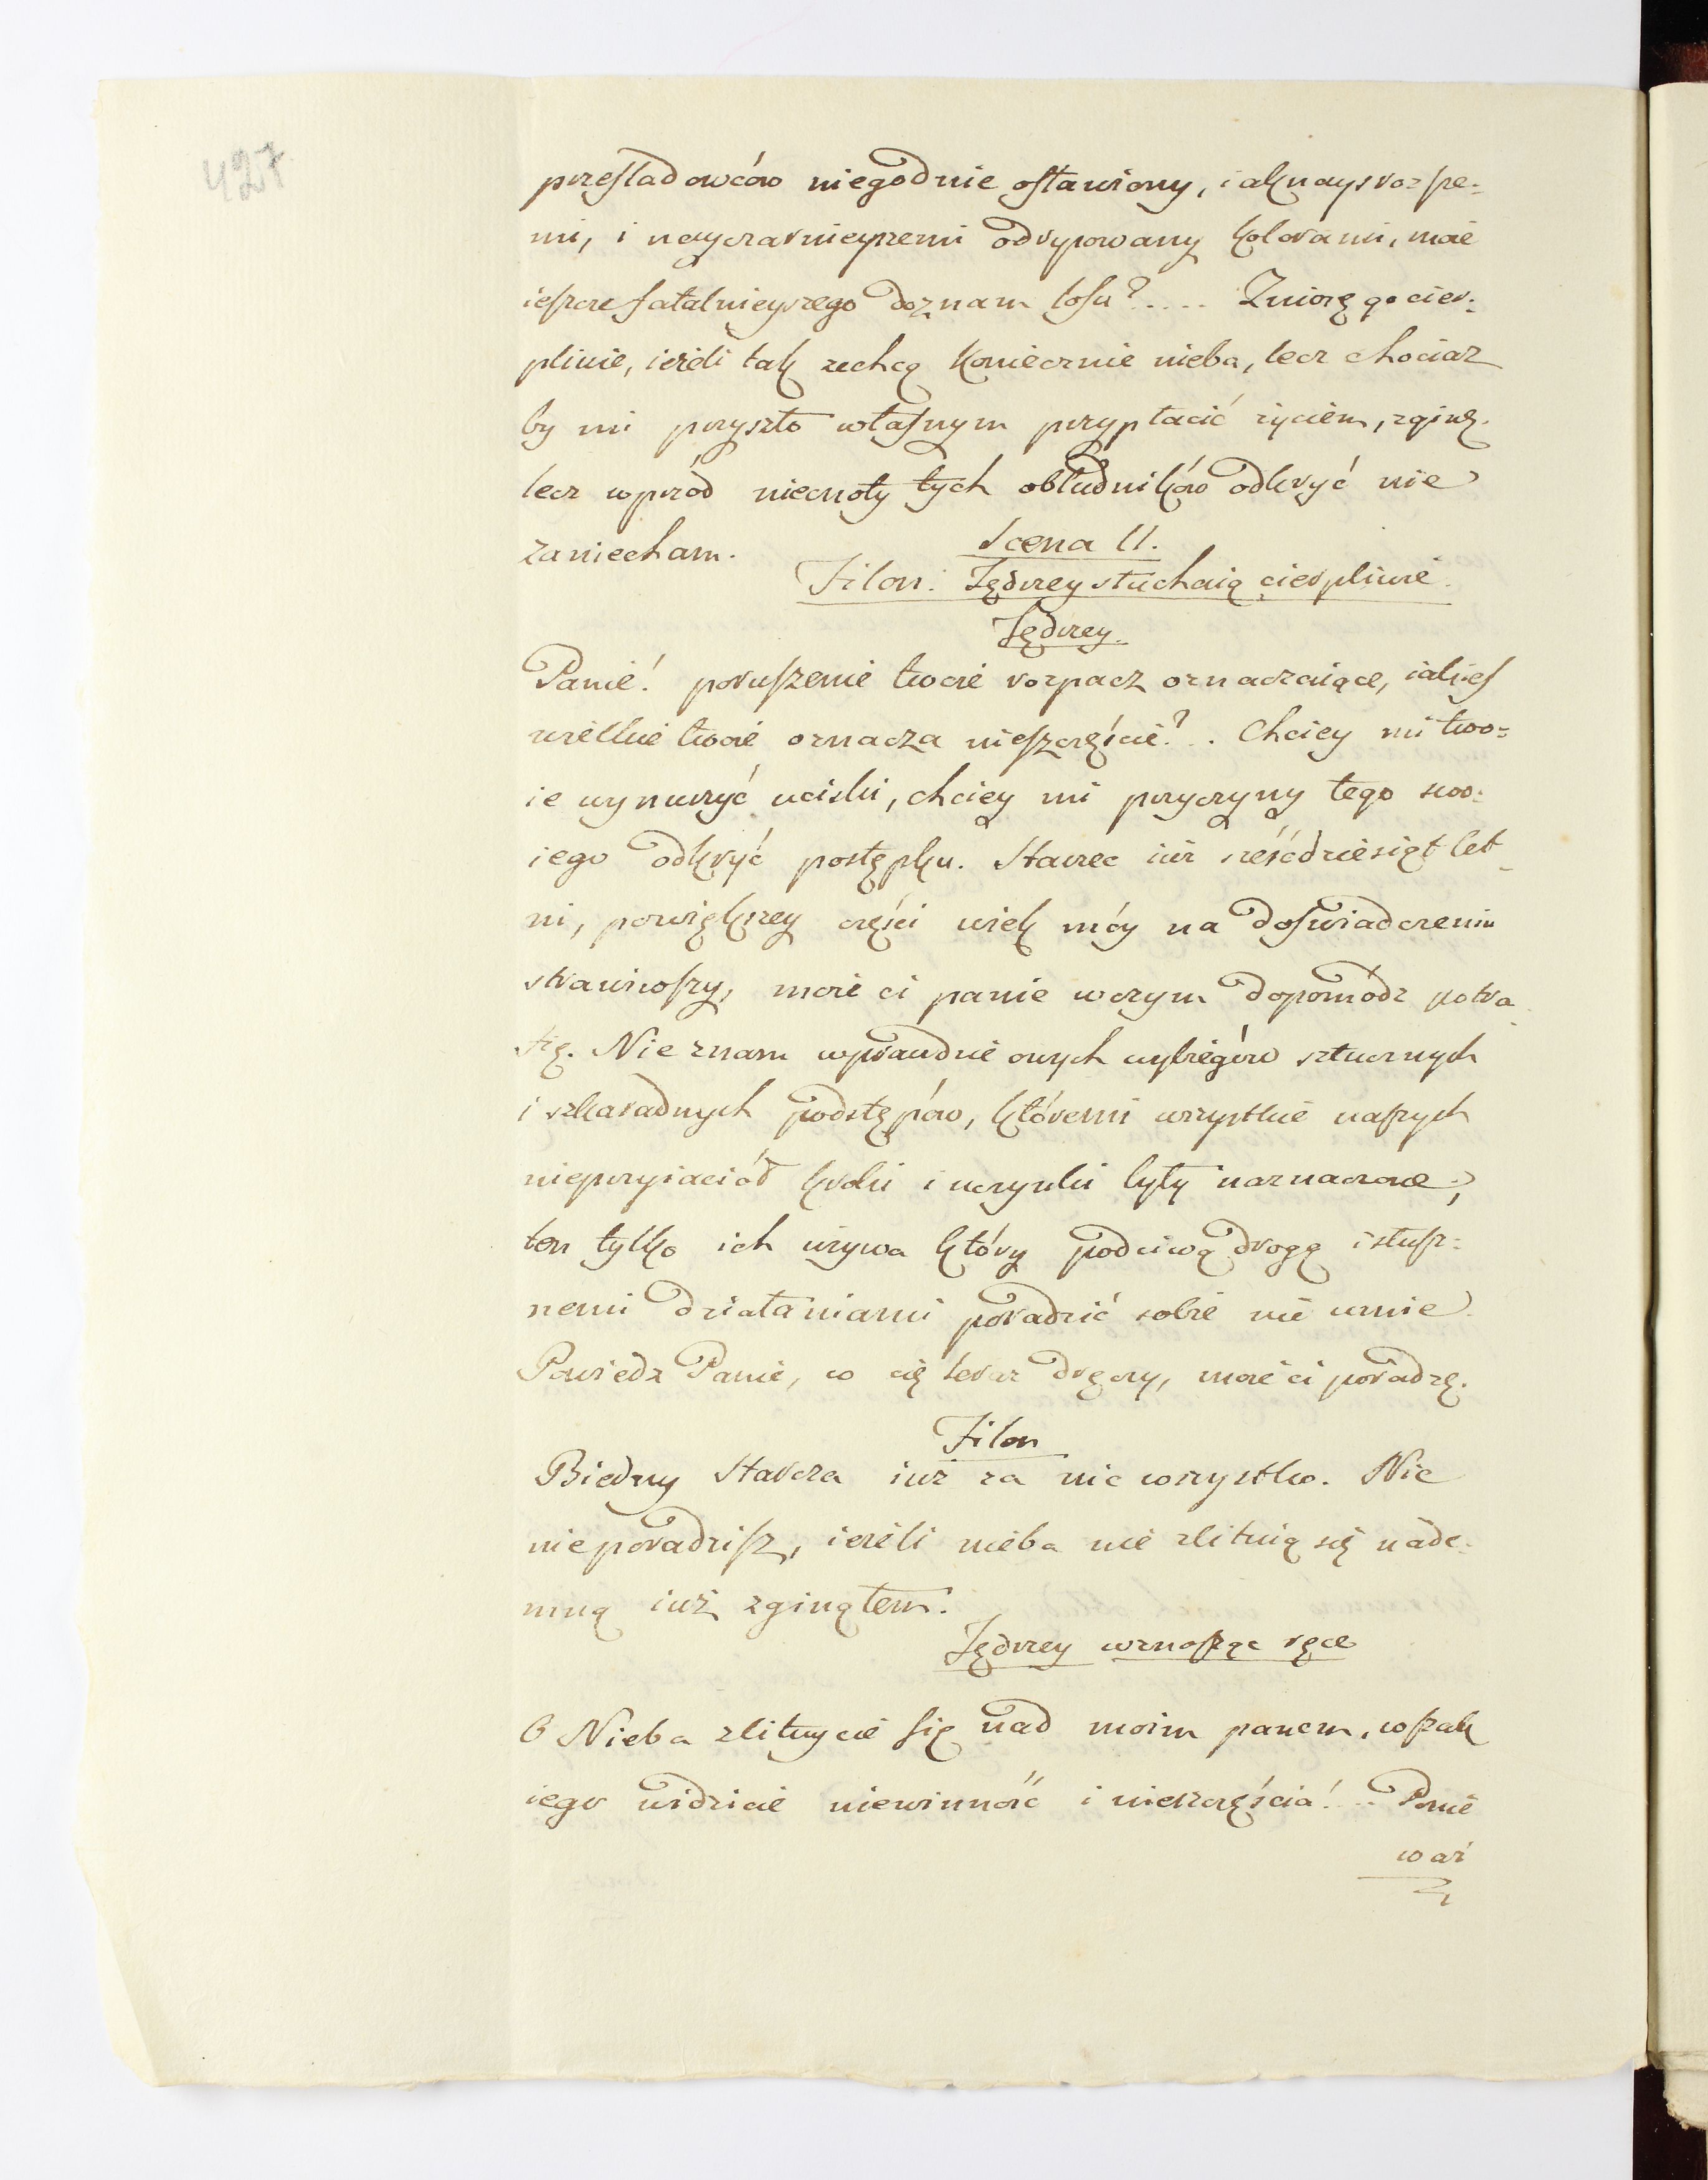 427
prześladowców niegodnie osławiony, iak naysroższe-
mi, i nayczarnieyszemi odrysowany kolorami, może
ieszcze fatalnieyszego doznam losu?.... Zniosę go cier-
pliwie, ieżeli tak zechcą koniecznie nieba, lecz chociaż
by mi przyszło własnym przypłacić życiem, zginę.
lecz wprzód niecnoty tych obłudników odkryć nie
zaniecham.
Scena II.
Filon. Jędrzey słuchaią cierpliwie.
Jędrzey.
Panie! poruszenie twoie rozpacz oznaczaiące, iakieś
wielkie twoie oznacza nieszczęście?.. Chciey mi two=
ie wynurzyć uciski, chciey mi przyczyny tego swo-
iego odkryć postępku. Starzec iuż sześćdziesiąt let-
ni, powiększey części wiek móy na doświadczeniu
strawiwszy, może ci panie w czym dopomódz potra-
fię. Nie znam wprawdzie owych wybiegów sztucznych
i szkaradnych podstępów, któremi wszystkie naszych
nieprzyiaciół kroki i uczynki były naznaczone;
ten tylko ich używa który podciwą drogą i słusz=
nemi działaniami poradzić sobie nie umie.
Powiedz Panie, co cię teraz dręczy, może ci poradzę.
Filon
Biedny Starcze iuż za nic wszystko. Nic
nie poradzisz, ieżeli nieba nie zlituią się nade-
mną iuż zginąłem.
Jędrzey wznosząc ręce
O Nieba zlituycie się nad moim panem, wszak
iego widzicie niewinność i nieszczęścia!... Ponie
waż